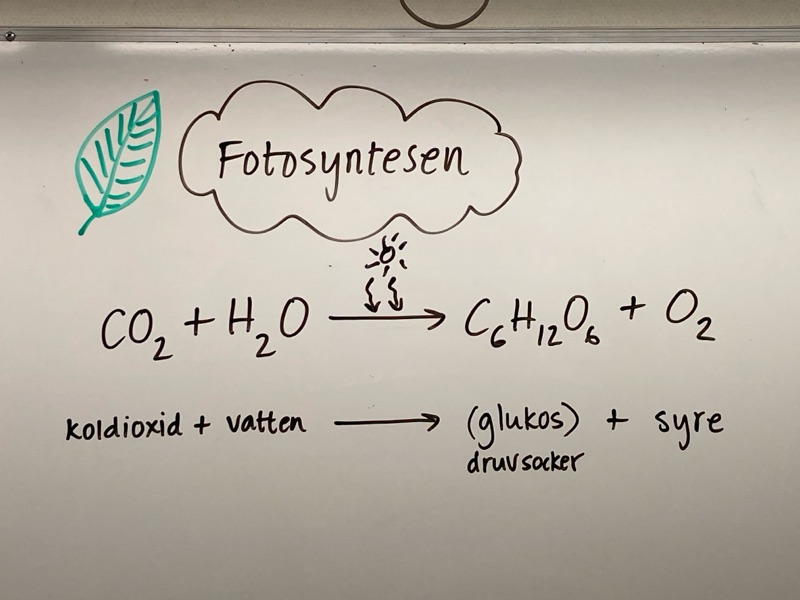 Fotosyntesen
CO₂ + H₂O ⟶ C₆H₁₂O₆ + O₂
koldioxid + vatten ⟶ (glukos) + syre
druvsocker